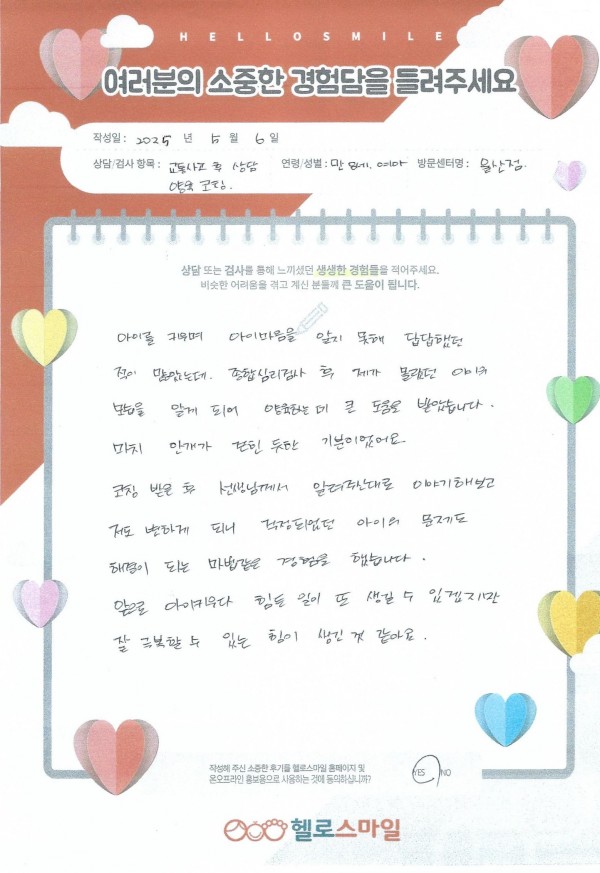 HELLOSMILE
여러분의 소중한 경험담을 들려주세요
작성일 : 2025 년 5 월 6 일
상담/검사 항목 : 교통사고 후 상담 연령/성별 : 만 8세, 여아 방문센터명 : 울산점.
양육 코칭.
상담 또는 검사를 통해 느끼셨던 생생한 경험들을 적어주세요.
비슷한 어려움을 겪고 계신 분들께 큰 도움이 됩니다.
아이를 키우며 아이마음을 알지 못해 답답했던
적이 많았는데. 종합심리검사 후 제가 몰랐던 아이의
모습을 알게 되어 양육하는데 큰 도움을 받았습니다.
마치 안개가 걷힌 듯한 기분이었어요.
코칭 받은 후 선생님께서 알려주신대로 이야기해보고
저도 변하게 되니 걱정되었던 아이의 문제도
해결이 되는 마법같은 경험을 했습니다.
앞으로 아이키우다 힘든 일이 또 생길 수 있겠지만
잘 극복할 수 있는 힘이 생긴 것 같아요.
작성해 주신 소중한 후기를 헬로스마일 홈페이지 및
온오프라인 홍보용으로 사용하는 것에 동의하십니까?
YES / NO
헬로스마일